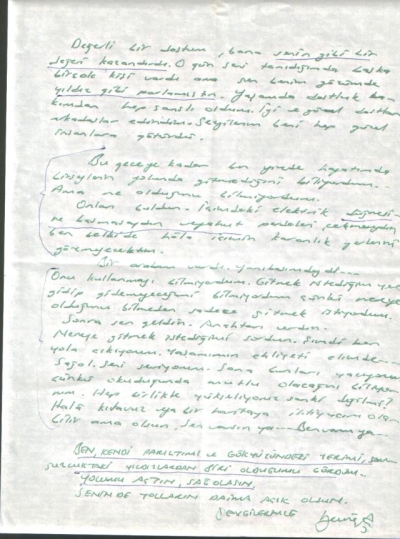 Değerli bir dostum, bana senin gibi bir
değeri kazandırdı. O gün seni tanıdığımda başka
birçok kişi vardı ama sen benim gözümde
yıldız gibi parlamıştın. Yaşamda dostluk ba-
kımından hep şanslı oldum. İyi ve güzel dostlar
arkadaşlar edindim. Sevgilerim beni hep güzel
insanlara götürdü.
Bu geceye kadar bir yerde hayatımda
birşeylerin yolunda gitmediğini biliyordum...
Ama ne olduğunu bilmiyordum.
Onları buldum. İçimdeki elektrik düğmesi-
ne basmasaydın perdeleri çekmeseydin
ben belki de hâlâ içimin karanlık yerlerini
göremeyecektim.
Bir arabam vardı.
Onu kullanmayı bilmiyordum. Gitmek istediğim yere
gidip gidemeyeceğimi bilmiyordum çünkü nereye
olduğunu bilmeden sadece gitmek istiyordum.
Sonra sen geldin. Anahtarı verdin.
Nereye gitmek istediğimi sordun. Şimdi ben
yola çıkıyorum. Yaşamımın ehliyeti elimde...
Sağol. Seni seviyorum. Sana bunları yazıyorum
çünkü okuduğunda mutlu olacağını biliyo-
rum. Hep birlikte yükseliyoruz sanki değil mi?
Hâlâ kıdavuz ya bir haritaya ihtiyacım ola-
bilir ama olsun. Sen varsın ya... Ben varım ya...
BEN, KENDİ PARILTIMI VE GÖKYÜZÜNDEKİ YERİMİ, SON-
SUZLUKTAKİ YILDIZLARDAN BİRİ OLDUĞUMU GÖRDÜM...
YOLUMU AÇTIN, SAĞOLASIN,
SENİN DE YOLLARIN DAİMA AÇIK OLSUN.
SEVGİLERİMLE